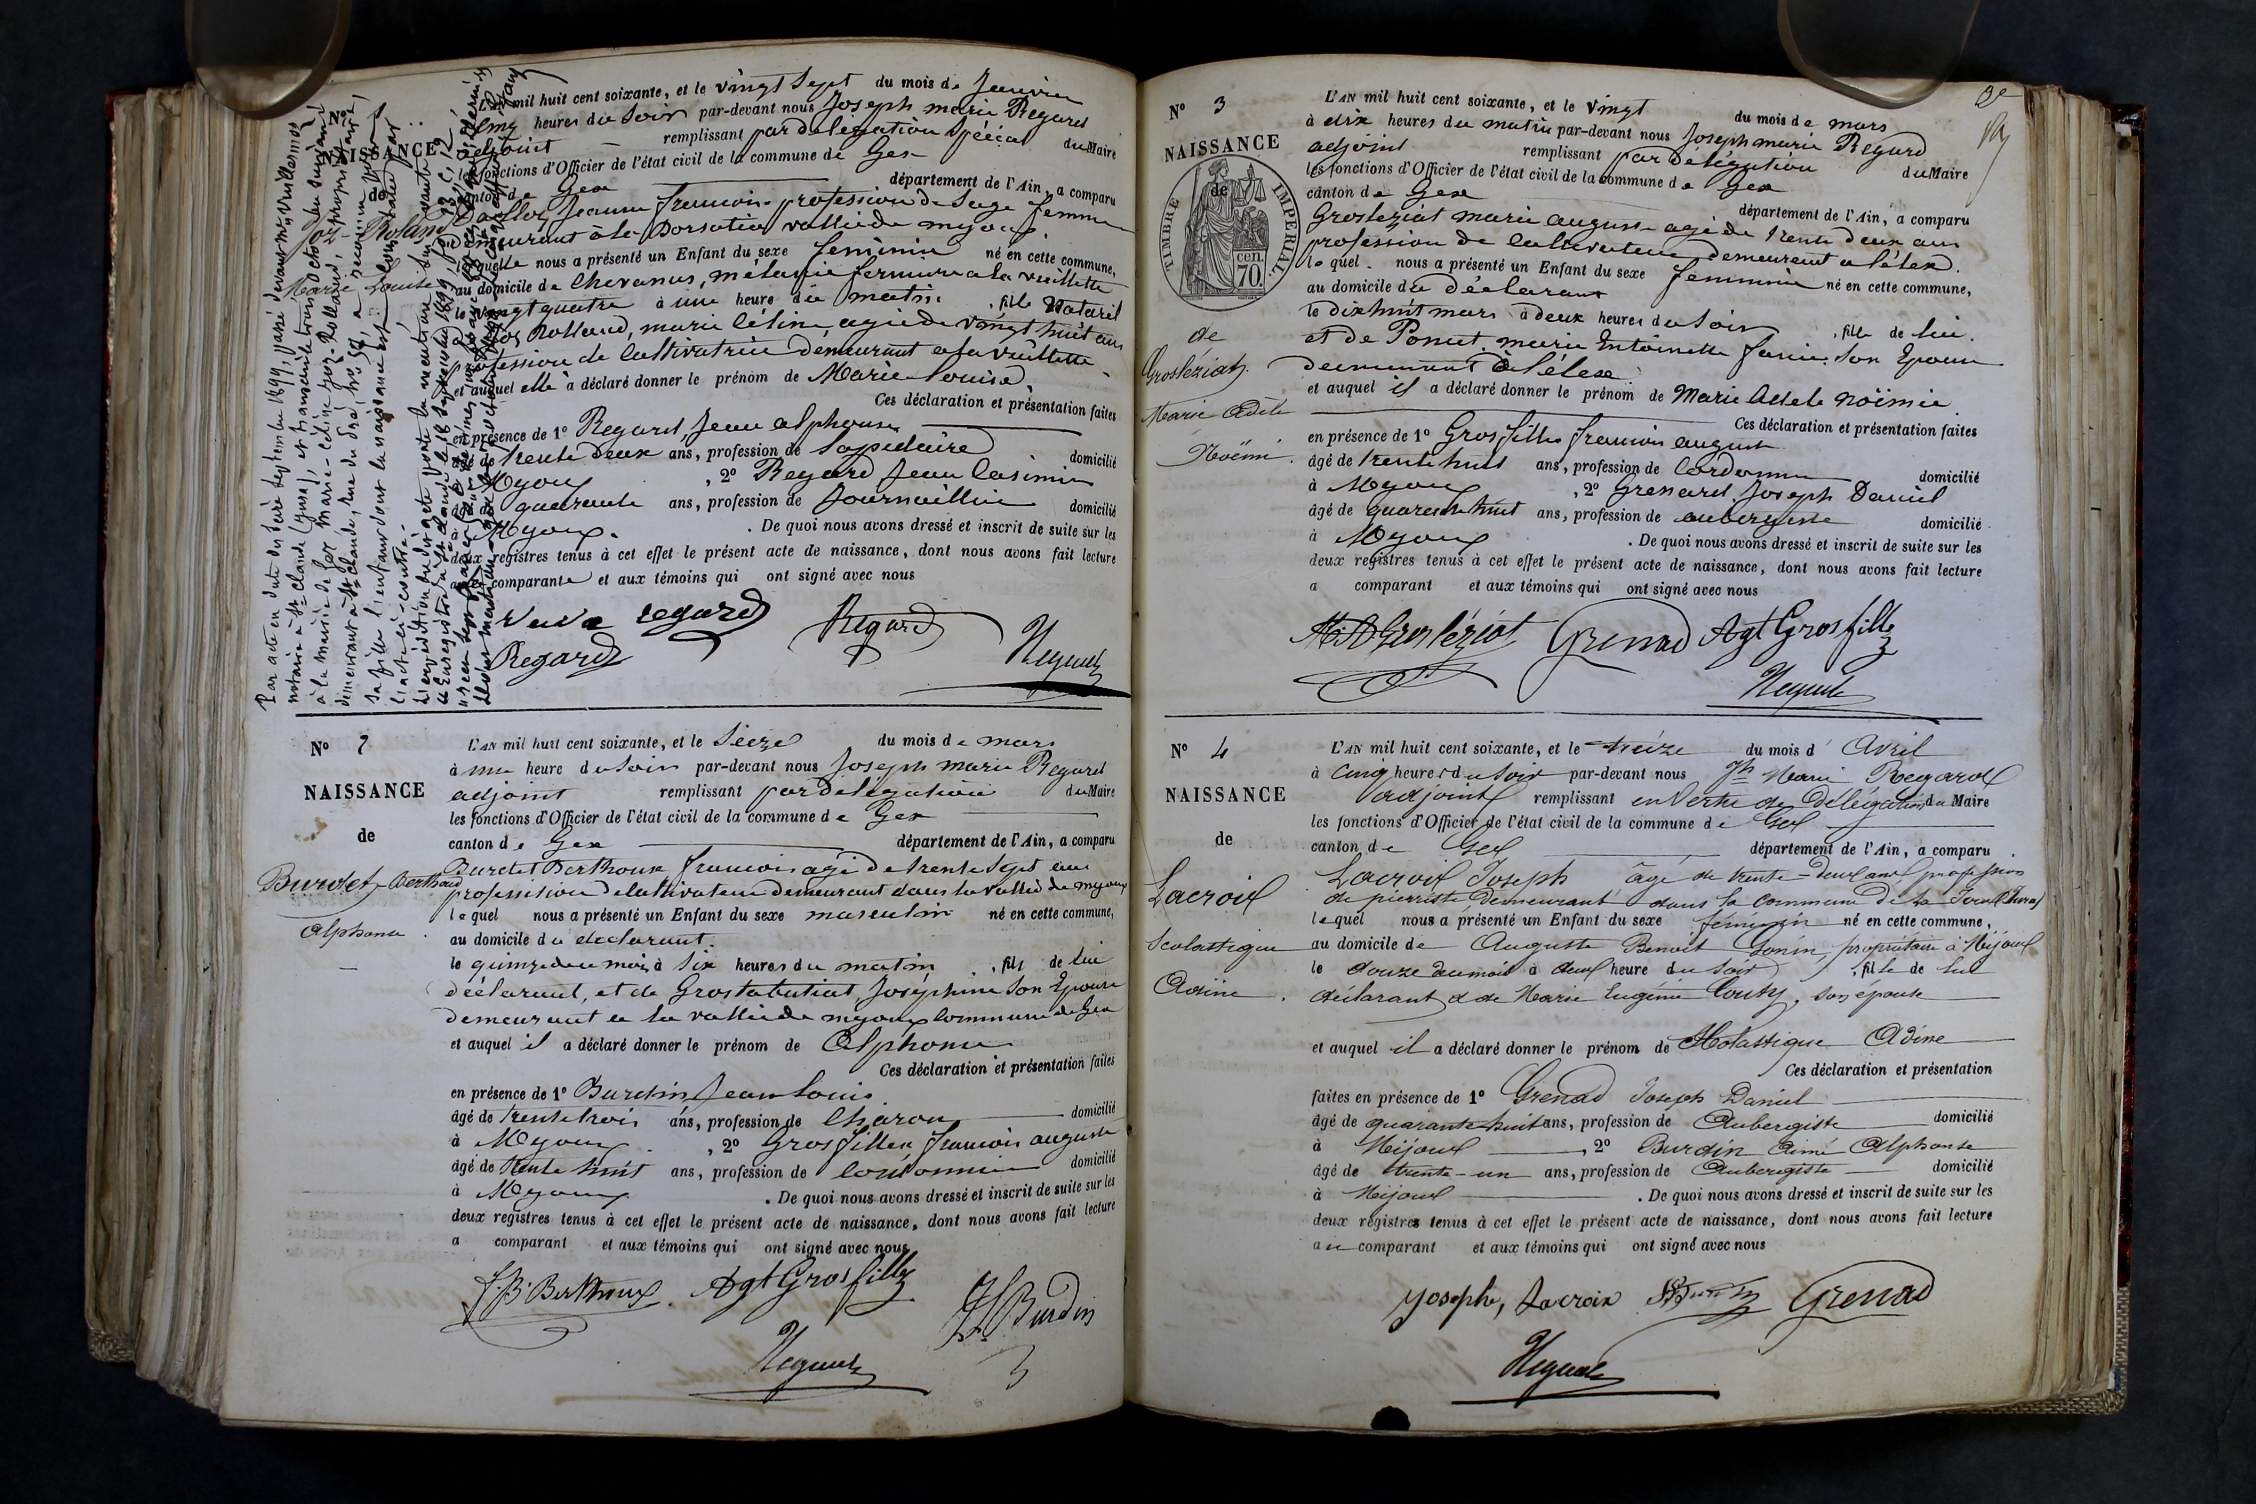 Par acte en date du seize septembre 1899, passé devant me Vuillermoz
notaire à St Claude (Jura), et transcrit le trois octobre suivant
à la mairie de Gex Marie-Céline Joz-Rolland, propriétaire,
demeurant à St Claude, rue du Pré, a reconnu pour
sa fille l'enfant dont la naissance est constatée par
l'acte ci-contre.
L'expédition dudit acte porte la mention suivante
Enregistré à St Claude, le 18 septembre 1899,
Nº
NAISSANCE
de
Joz-Roland
Marie Louise
L'AN mil huit cent soixante, et le vingt Sept du mois de Janvier
à cinq heures du Soir par-devant nous Joseph marie Regard
adjoint remplissant par délégation Spécial du Maire
les fonctions d'Officier de l'état civil de la commune de Gex
canton de Gex département de l'Ain, a comparu
Jeanne francoise profession de Sage femme
demeurant à la vallée de myoux.
laquelle nous a présenté un Enfant du sexe feminin né en cette commune,
au domicile de Chevanus, mélanie fermiere a la vieillette
le vingt quatre à une heure du matin, fille Naturel
de Joz Rolland, marie Céline, agée de vingt huit ans
profession de Cultivatrice demeurant a la vieillette
et auquel elle a déclaré donner le prénom de Marie Louise.
Ces déclaration et présentation faites
en présence de 1º Regard, Jean alphonse
âgé de trente deux ans, profession de Lapidaire domicilié
à Myoux, 2º Regard Jean Casimir
âgé de quarante ans, profession de Journaillier domicilié
à Myoux. De quoi nous avons dressé et inscrit de suite sur les
deux registres tenus à cet effet le présent acte de naissance, dont nous avons fait lecture
a la comparante et aux témoins qui ont signé avec nous
Veuve regard Regard
Regard Regard
Nº 2
NAISSANCE
de
Burdet Berthoud
alphonse
L'AN mil huit cent soixante, et le Seize du mois de mars
à une heure du Soir par-devant nous Joseph marie Regard
adjoint remplissant par délégation du Maire
les fonctions d'Officier de l'état civil de la commune de Gex
canton de Gex département de l'Ain, a comparu
Burdet Berthoux francois agé de trente Sept ans
profession de Cultivateur demeurant dans la vallée de myoux
lequel nous a présenté un Enfant du sexe masculin né en cette commune,
au domicile du declarant.
le quinze du mois, à Six heures du matin, fils de lui
déclarant, et de Grostabutiat Josephine Son Epouse
demeurant a la vallée de myoux Commune de Gex
et auquel il a déclaré donner le prénom de Alphonse
Ces déclaration et présentation faites
en présence de 1º Burdin Jean Louis
âgé de trente trois ans, profession de Charon domicilié
à Myoux, 2º Grosfillex francois auguste
âgé de trente huit ans, profession de Cordonnier domicilié
à Myoux. De quoi nous avons dressé et inscrit de suite sur les
deux registres tenus à cet effet le présent acte de naissance, dont nous avons fait lecture
a comparant et aux témoins qui ont signé avec nous
f. B. Berthoux Agt Grosfillex
JL Burdin
Regard
3e
Nº 3
NAISSANCE
TIMBRE IMPERIAL.
cen. 70.
de
de
Grosléziat.
Marie Adèle
Noëmi.
L'AN mil huit cent soixante, et le vingt du mois de mars
à dix heures du matin par-devant nous Joseph marie Regard
adjoint remplissant par délégation du Maire
les fonctions d'Officier de l'état civil de la commune de Gex
canton de Gex département de l'Ain, a comparu
Grosleziat marie auguste agé de trente deux ans
profession de Cultivateur demeurant a lélex.
lequel nous a présenté un Enfant du sexe feminin né en cette commune,
au domicile du déclarant
le dix huit mars à deux heures du Soir, fille de lui.
et de Poncet. marie Entoinette fanie. Son Epouse
demeurant à lélex.
et auquel il a déclaré donner le prénom de Marie Adele Noëmie
Ces déclaration et présentation faites
en présence de 1º Grosfillex francois auguste
âgé de trente huit ans, profession de Cordonnier domicilié
à Myoux, 2º Grenard, Joseph Daniel
âgé de quarente huit ans, profession de aubergiste domicilié
à Myoux. De quoi nous avons dressé et inscrit de suite sur les
deux registres tenus à cet effet le présent acte de naissance, dont nous avons fait lecture
a comparant et aux témoins qui ont signé avec nous
M. A Grosléziat Grenad Agt Grosfillex
Regard
Nº 4
NAISSANCE
de
Lacroix
Scolastique
Adine.
L'AN mil huit cent soixante, et le treize du mois d'Avril
à cinq heures du Soir par-devant nous Jh Marie Regard
adjoint remplissant en Vertu de Délégation du Maire
les fonctions d'Officier de l'état civil de la commune de Gex
canton de Gex département de l'Ain, a comparu
Lacroix Joseph âgé de trente-deux ans profession
de pierriste demeurant dans la commune de la (Jura)
lequel nous a présenté un Enfant du sexe féminin né en cette commune,
au domicile de Auguste Benoit Gonin, propriétaire à Mijoux
le douze du mois à deux heure du soir, fille de lui
déclarant & de Marie Eugénie Couty, son épouse
et auquel il a déclaré donner le prénom de Scholastique Adine
Ces déclaration et présentation
faites en présence de 1º Grenad Joseph Daniel
âgé de quarante huit ans, profession de Aubergiste domicilié
à Mijoux, 2º Burdin Aimé Alphonse
âgé de trente-un ans, profession de Aubergiste domicilié
à Mijoux. De quoi nous avons dressé et inscrit de suite sur les
deux registres tenus à cet effet le présent acte de naissance, dont nous avons fait lecture
au comparant et aux témoins qui ont signé avec nous
Joseph, Lacroix Grenad
Regard